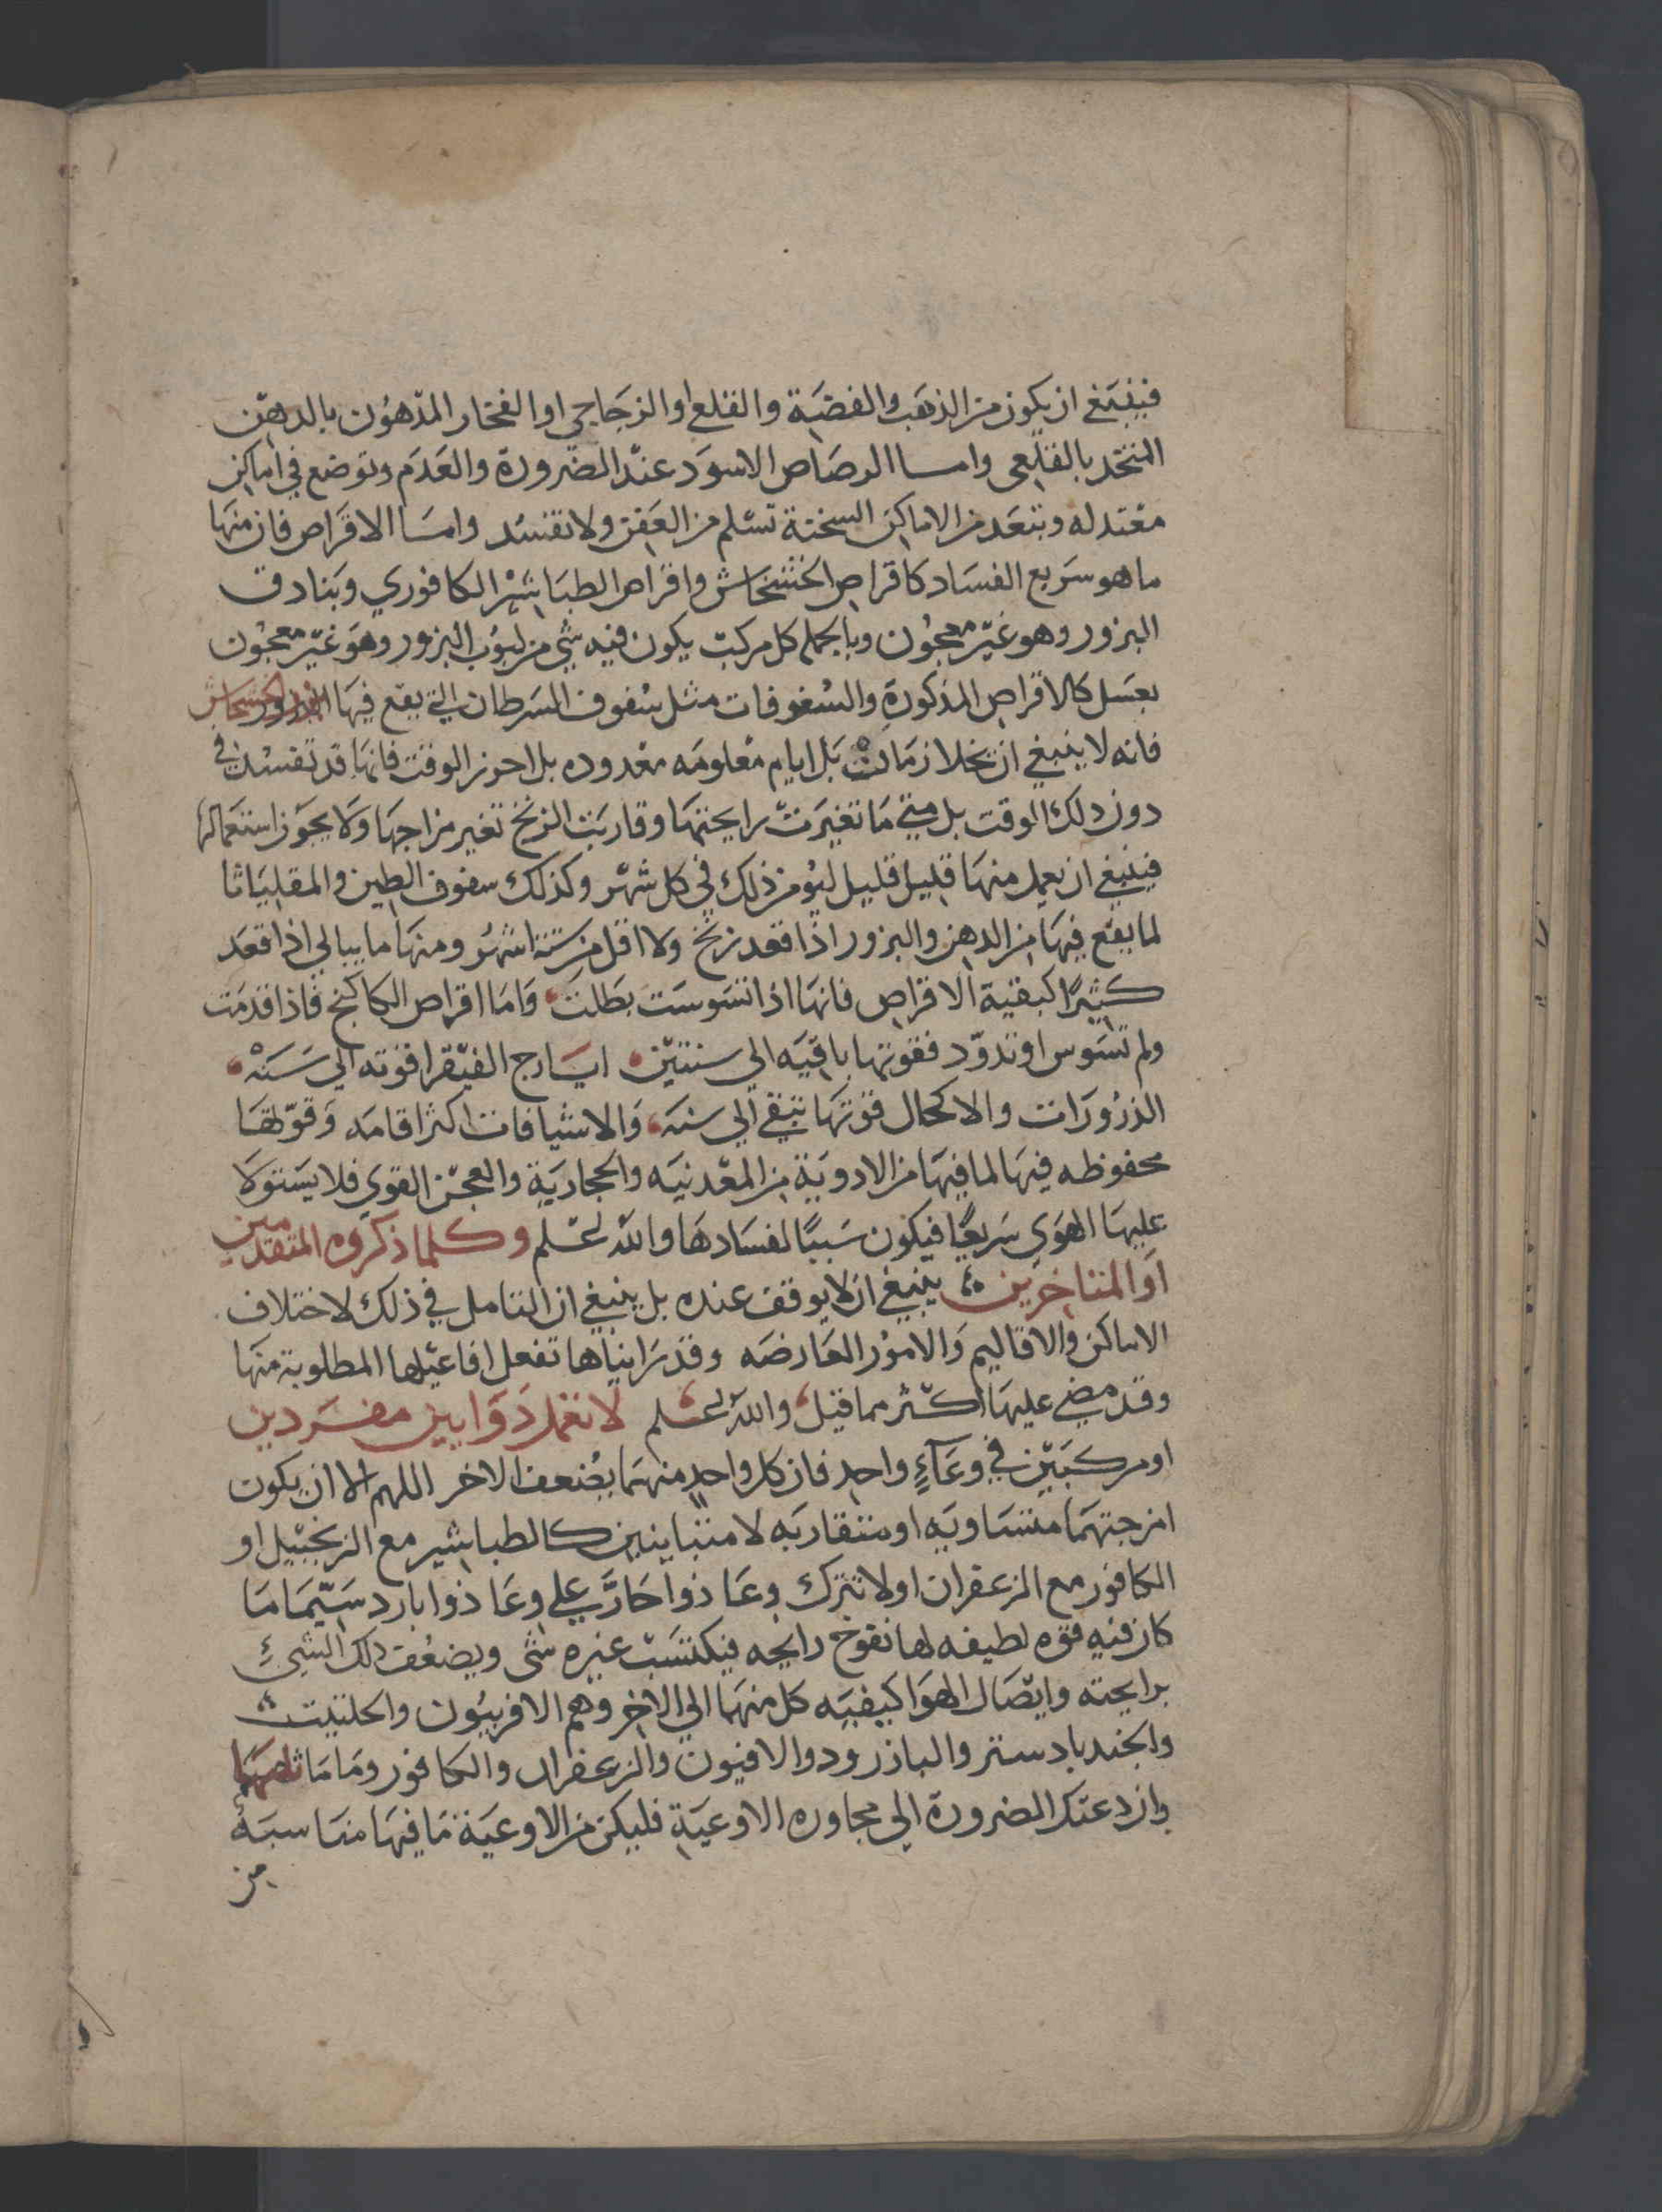 فينبغي ان يكون من الذهب والفضة والقلع او الزجاجي او الفخار المدهون بالدهن
المتخد بالقلعي واما الرصاص الاسود عند الضرورة والعدم وتوضع في اماكن
معتدله وتبعد من الاماكن السخنة تسلم من العفن ولا تفسد واما الاقراص فان منها
ما هو سريع الفساد كاقراص الخشخاش واقراص الطباشير الكافوري وبنادق
البزور وهو غير معجون وبالجمله كل مركب يكون فيه شي من لبوب البزور وهو غير معجون
بعسل كالاقراص المذكورة والسفوفات مثل سفوف السرطان التي يقع فيها البزور الخشخاش
فانه لا ينبغي ان بل ايام معلومه معدوده بل احوز الوقت فانها قد تفسد في
دون دلك الوقت بل متي ما تغيرت رايحتها وقاربت الزنخ تغير مزاجها ولا يجوز استعمالها
فينبغي ان يعمل منها قليل قليل ليومن ذلك في كل شهر وكذلك سفوف الطين والمقلياثا
لما يقع فيها من الدهن والبزور اذا قعد زنخ ولا اقل من ستة اشهر ومنها ما يبالي اذا قعد
كثيرا كبقية الاقراص فانها اذا تسوست بطلت واما اقراص الكاكنج فاذا قدمت
ولم تسوس او تدود فقوتها باقيه الي سنتين ايارج الفيقرا قوته الي سنه
الذرورات والاكحال قوتها تبقي الي سنه والاشيافات اكثر اقامه وقوتها
محفوظه فيها لما فيها من الادوية من المعدنيه والحجارية والعجن القوي فلا يستولا
عليها الهوي سريعا فيكون سببا لفسادها والله اعلم وكلما ذكروه المتقدمين
او المتاخرين ينبغي ان لا يوقف عنده بل ينبغي ان التامل في ذلك لاختلاف
الاماكن والاقاليم والامور العارضه وقد رايناها تفعل افاعيلها المطلوبة منها
وقد مضي عليها اكثر مما قيل والله اعلم لا تعمل دوايين مفردين
او مركبين في وعآء واحد فان كل واحد منهما يضعف الاخر اللهم الا ان يكون
امزجتهما متساويه او متقاربه لا متباينين كالطباشير مع الزنجبيل او
الكافور مع الزعفران او لا تترك وعا ذوا حار علي وعا ذوا بارد سيما ما
كان فيه قوه لطيفه لها تفوح رايحه فيكتسب غيره شي ويضعف دلك الشيء
برايحته وايصال الهوا كيفيه كل منهما الي الاخر وهم الافربيون والحلتيت
والجندبادستر والبازرود والافيون والزعفران والكافور وما ماثلهما
وان دعتك الضرورة الي مجاوره الاوعية فليكن من الاوعية ما فيها مناسبة
من